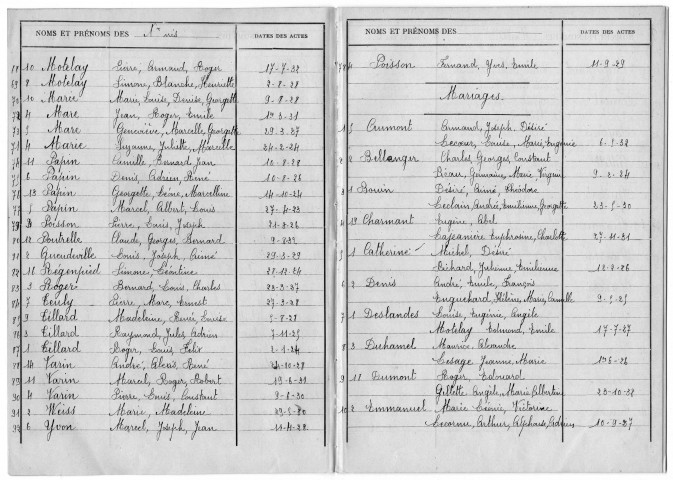 NOMS ET PRÉNOMS DES
DATES DES ACTES
10 Motelay Pierre, Armand, Roger 17-7-32
69 9 Motelay Simone, Blanche, Henriette 2-8-28
70 10 Marie Marie, Louise, Denise, Georgette 9-8-28
4 Marie Jean, Roger, Emile
5 Marie Geneviève, Marcelle, Georgette 29-3-27
4 Marie Suzanne, Juliette, Marcelle 24-2-24
11 Papin Camille, Bernard, Jean 10-8-28
6 Papin Denis, Adrien, René 10-8-26
13 Papin Georgette, Marcelline 14-10-24
Papin Marcel, Albert, Louis 27-4-23
Poisson Pierre, Louis, Joseph
12 Poutrelle Claude, Georges, Bernard
2 Queudeville Louis, Joseph, Aimé 29-3-29
16 Régenpied Simone, Léontine 28-12-24
83 3 Roger Bernard, Louis, Charles 23-3-27
84 7 Teuly Pierre, Marc, Ernest 27-3-28
9 Tillard Madeleine, Renée, Louise 5-8-28
86 3 Tillard Raymond, Jules, Adrien 7-11-25
87 1 Tillard Roger, Louis, Félix 2-1-24
88 14 Varin André, Alexis, René
89 11 Varin Marcel, Roger, Robert 19-6-31
90 4 Varin Pierre, Louis, Constant 9-6-30
91 2 Weiss Marie, Madeleine
6 Yvon Marcel, Joseph, Jean 11-4-28
NOMS ET PRÉNOMS DES
DATES DES ACTES
Poisson Fernand, Yves, Emile 11-9-29
Mariages.
1 5 Crumont Armand, Joseph, Désiré
Lecœur, Louise, Marie, Eugénie 6-5-32
2 2 Bellanger Charles, Georges, Constant
Beau, Germaine, Marie 9-2-24
3 1 Bouin Désiré, Aimé, Théodore
Leclain, Andrée, Emilienne, Georgette 23-5-30
4 Charmant Eugène, Abel
Euphrosine, Charlotte 27-11-31
5 1 Catherine Michel, Désiré
Béchard, Julienne, Emilienne
6 2 Denis André, Emile, François
Enguehard, Hélène, Marie, Camille 9-5-25
7 1 Deslandes Louise, Eugénie, Angèle
Motelay Edmond, Emile 17-7-27
8 3 Duhamel Maurice, Alexandre
Lesage Jeanne, Marie
9 11 Dumont Roger, Edouard
Gillette, Angèle, Marie, Albertine 23-10-32
10 2 Emmanuel Marie, Léonie, Victorine
Lecornu, Arthur, Alphonse, Adrien 10-9-27